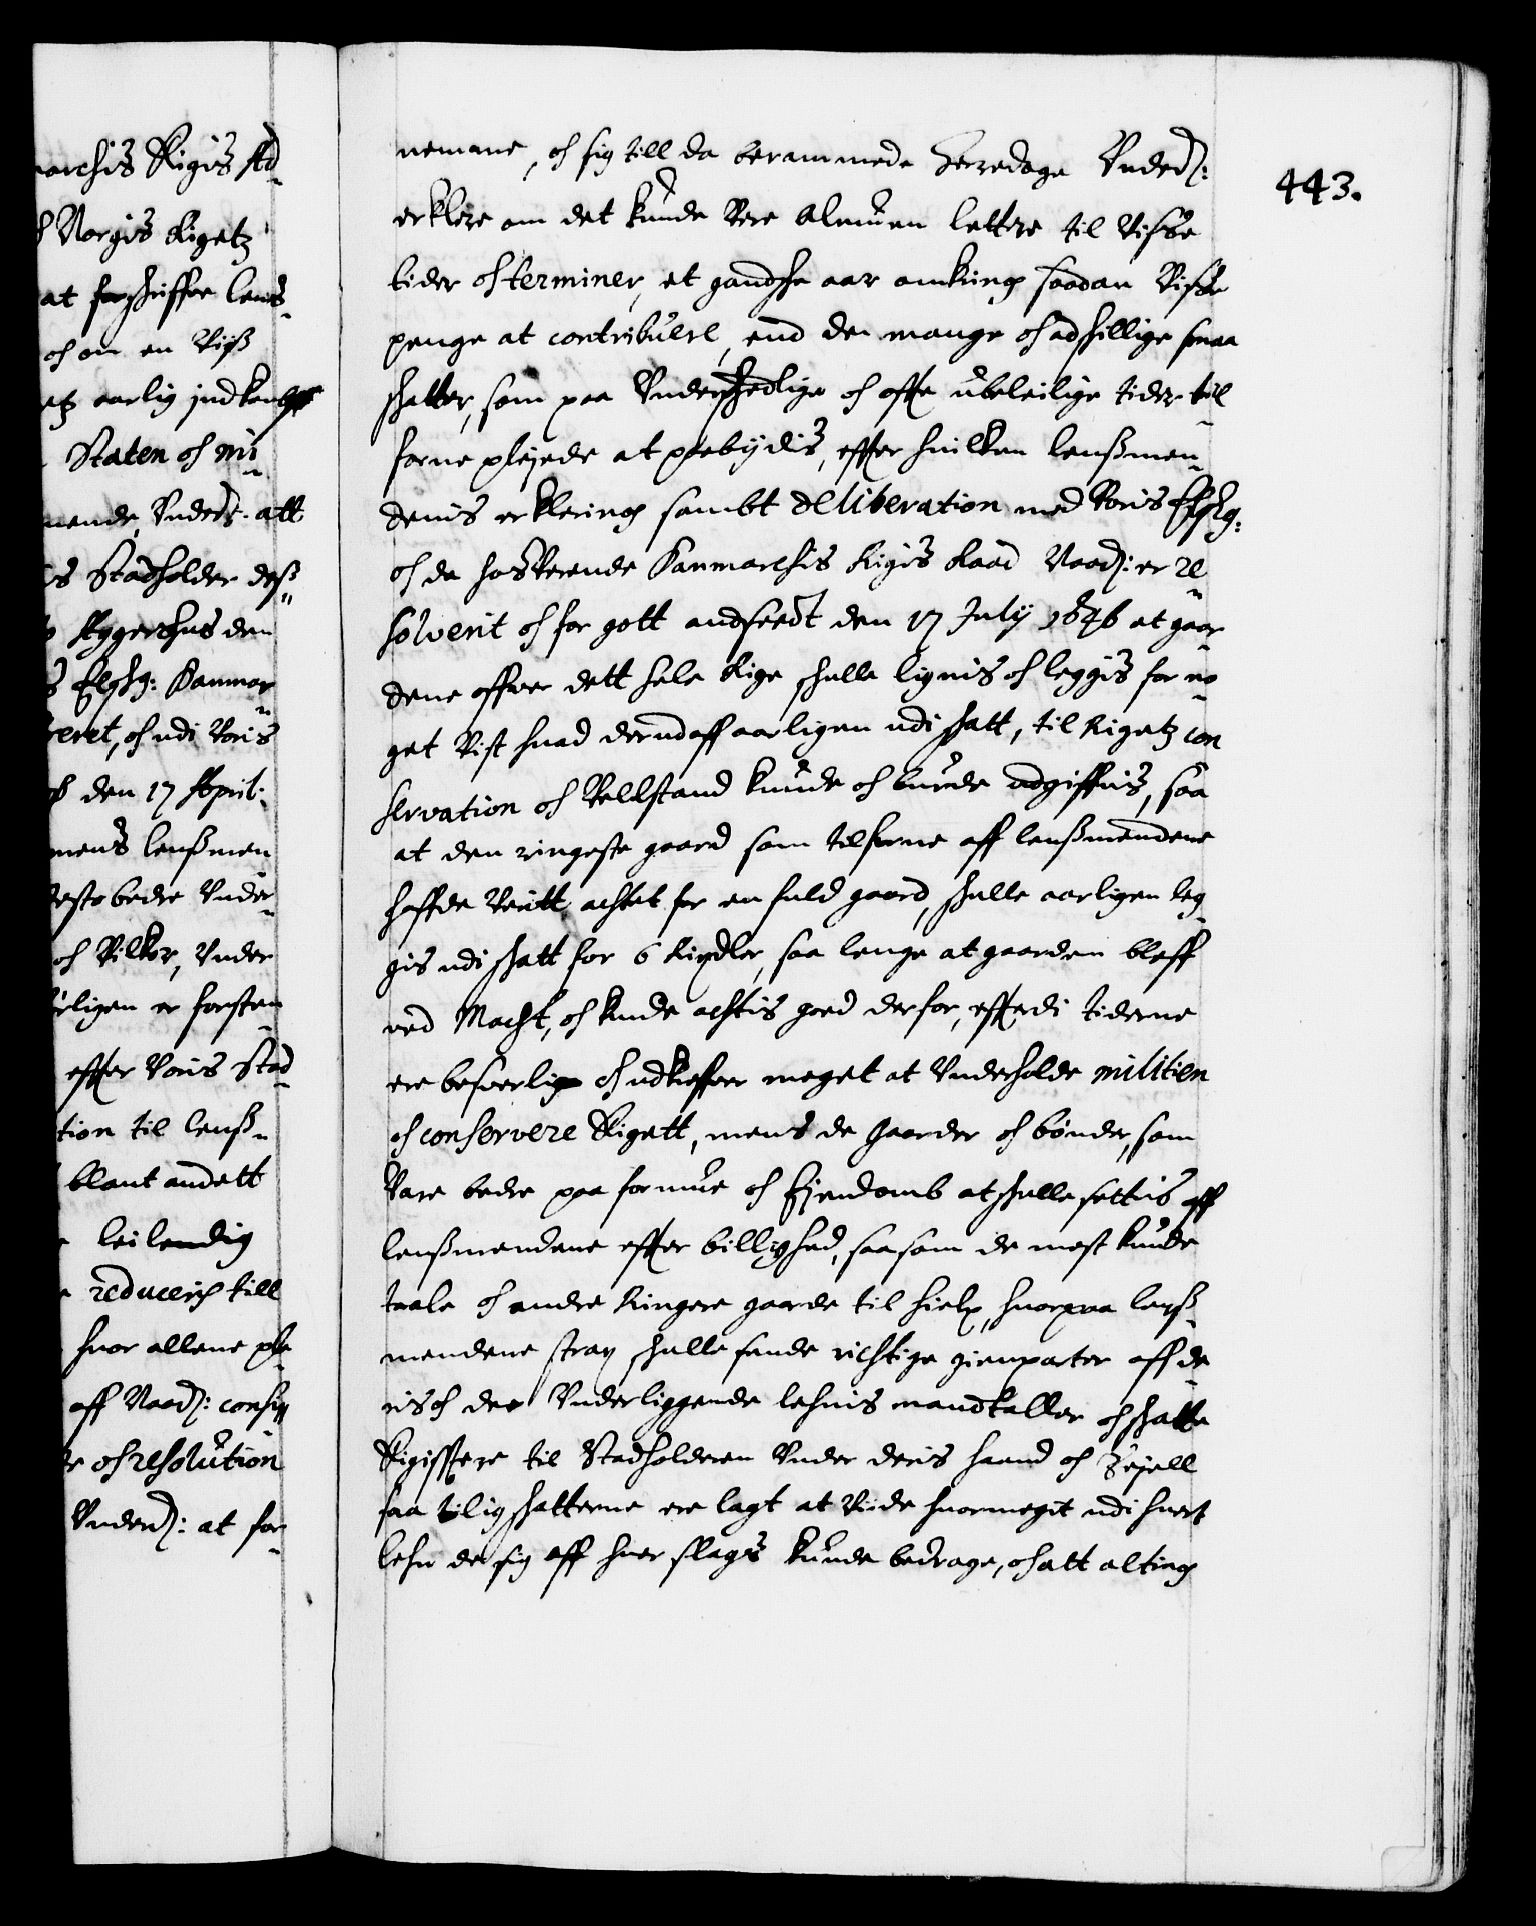 archis Rigis Ad¬
Norgis Rigetz
at forschiffue lens¬
och om en Viss
etz aarlig indkombst
Staten och mi¬
mende, Underd: att
is Stadholder dess
Aggershus den
s Elsch: Danmar¬
eret, och udi Voris
den 17 April:
mens lenssmen
desto bedre Under¬
och Vilkor, Under
rligen er forsten¬
effter Voris Stad¬
tion til lenss¬
blant andett
leilendig
reducerich till
huor allene ple¬
aff Naad: consi¬
och resolution
Underd: at for¬
443.
nemane, och sig till da berammede Herredage Underd:
erklere om det kunde Vere almuen lettere til Visse
tider och terminer, et gandsche aar omkring saadan Visse
penge at contribuere, end de mange och adschillige smaa
schatter, som paa Underschedlige och offte ubeleilige tider til¬
forne plejede at paabydis, effter huilken lenssmen¬
denis erklering sambt deliberation med Voris Elschg:
och da hosVerende Danmarchis Rigis Raad Naad: er re¬
solverit och for gott andseedt den 17 July 1646 at gaar¬
dene offuer dett hele Rige schulle lignis och leggis for no¬
get Vist huad derudaff aarligen udi schatt, til Rigetz con
servation och Vellstand kunde och burde udgiffuis, saa
at den ringeste gaard som tilforne aff lenssmendene
haffde Veritt achtet for en fuld gaard, schulle aarligen leg¬
gis udi schatt for 6 Rixdlr, saa lenge at gaarden bleff
ved Macht, och kunde achtis goed derfor, effterdi tiderne
ere besuerlige och udkreffuer meget at Underholde militien
och conservere Rigett, mens de gaarder och bønder, som
Vare bedre paa formue och Ejendomb at schulle settis aff
lenssmendene effter billighed, saasom de mest kunde
taale och andre Ringere gaarde til hielp, huorpaa lenss¬
mendene strax schulle sende richtige gienparter aff de¬
ris och der Underliggende lehnis mandtaller och schatte
Rigisstere til Stadholderen Under deris haand och Zejell
saa tilig schatterne ere lagt at Viide huormegit udi huert
lehn de sig aff huer slags kunde bedrage, och att alting